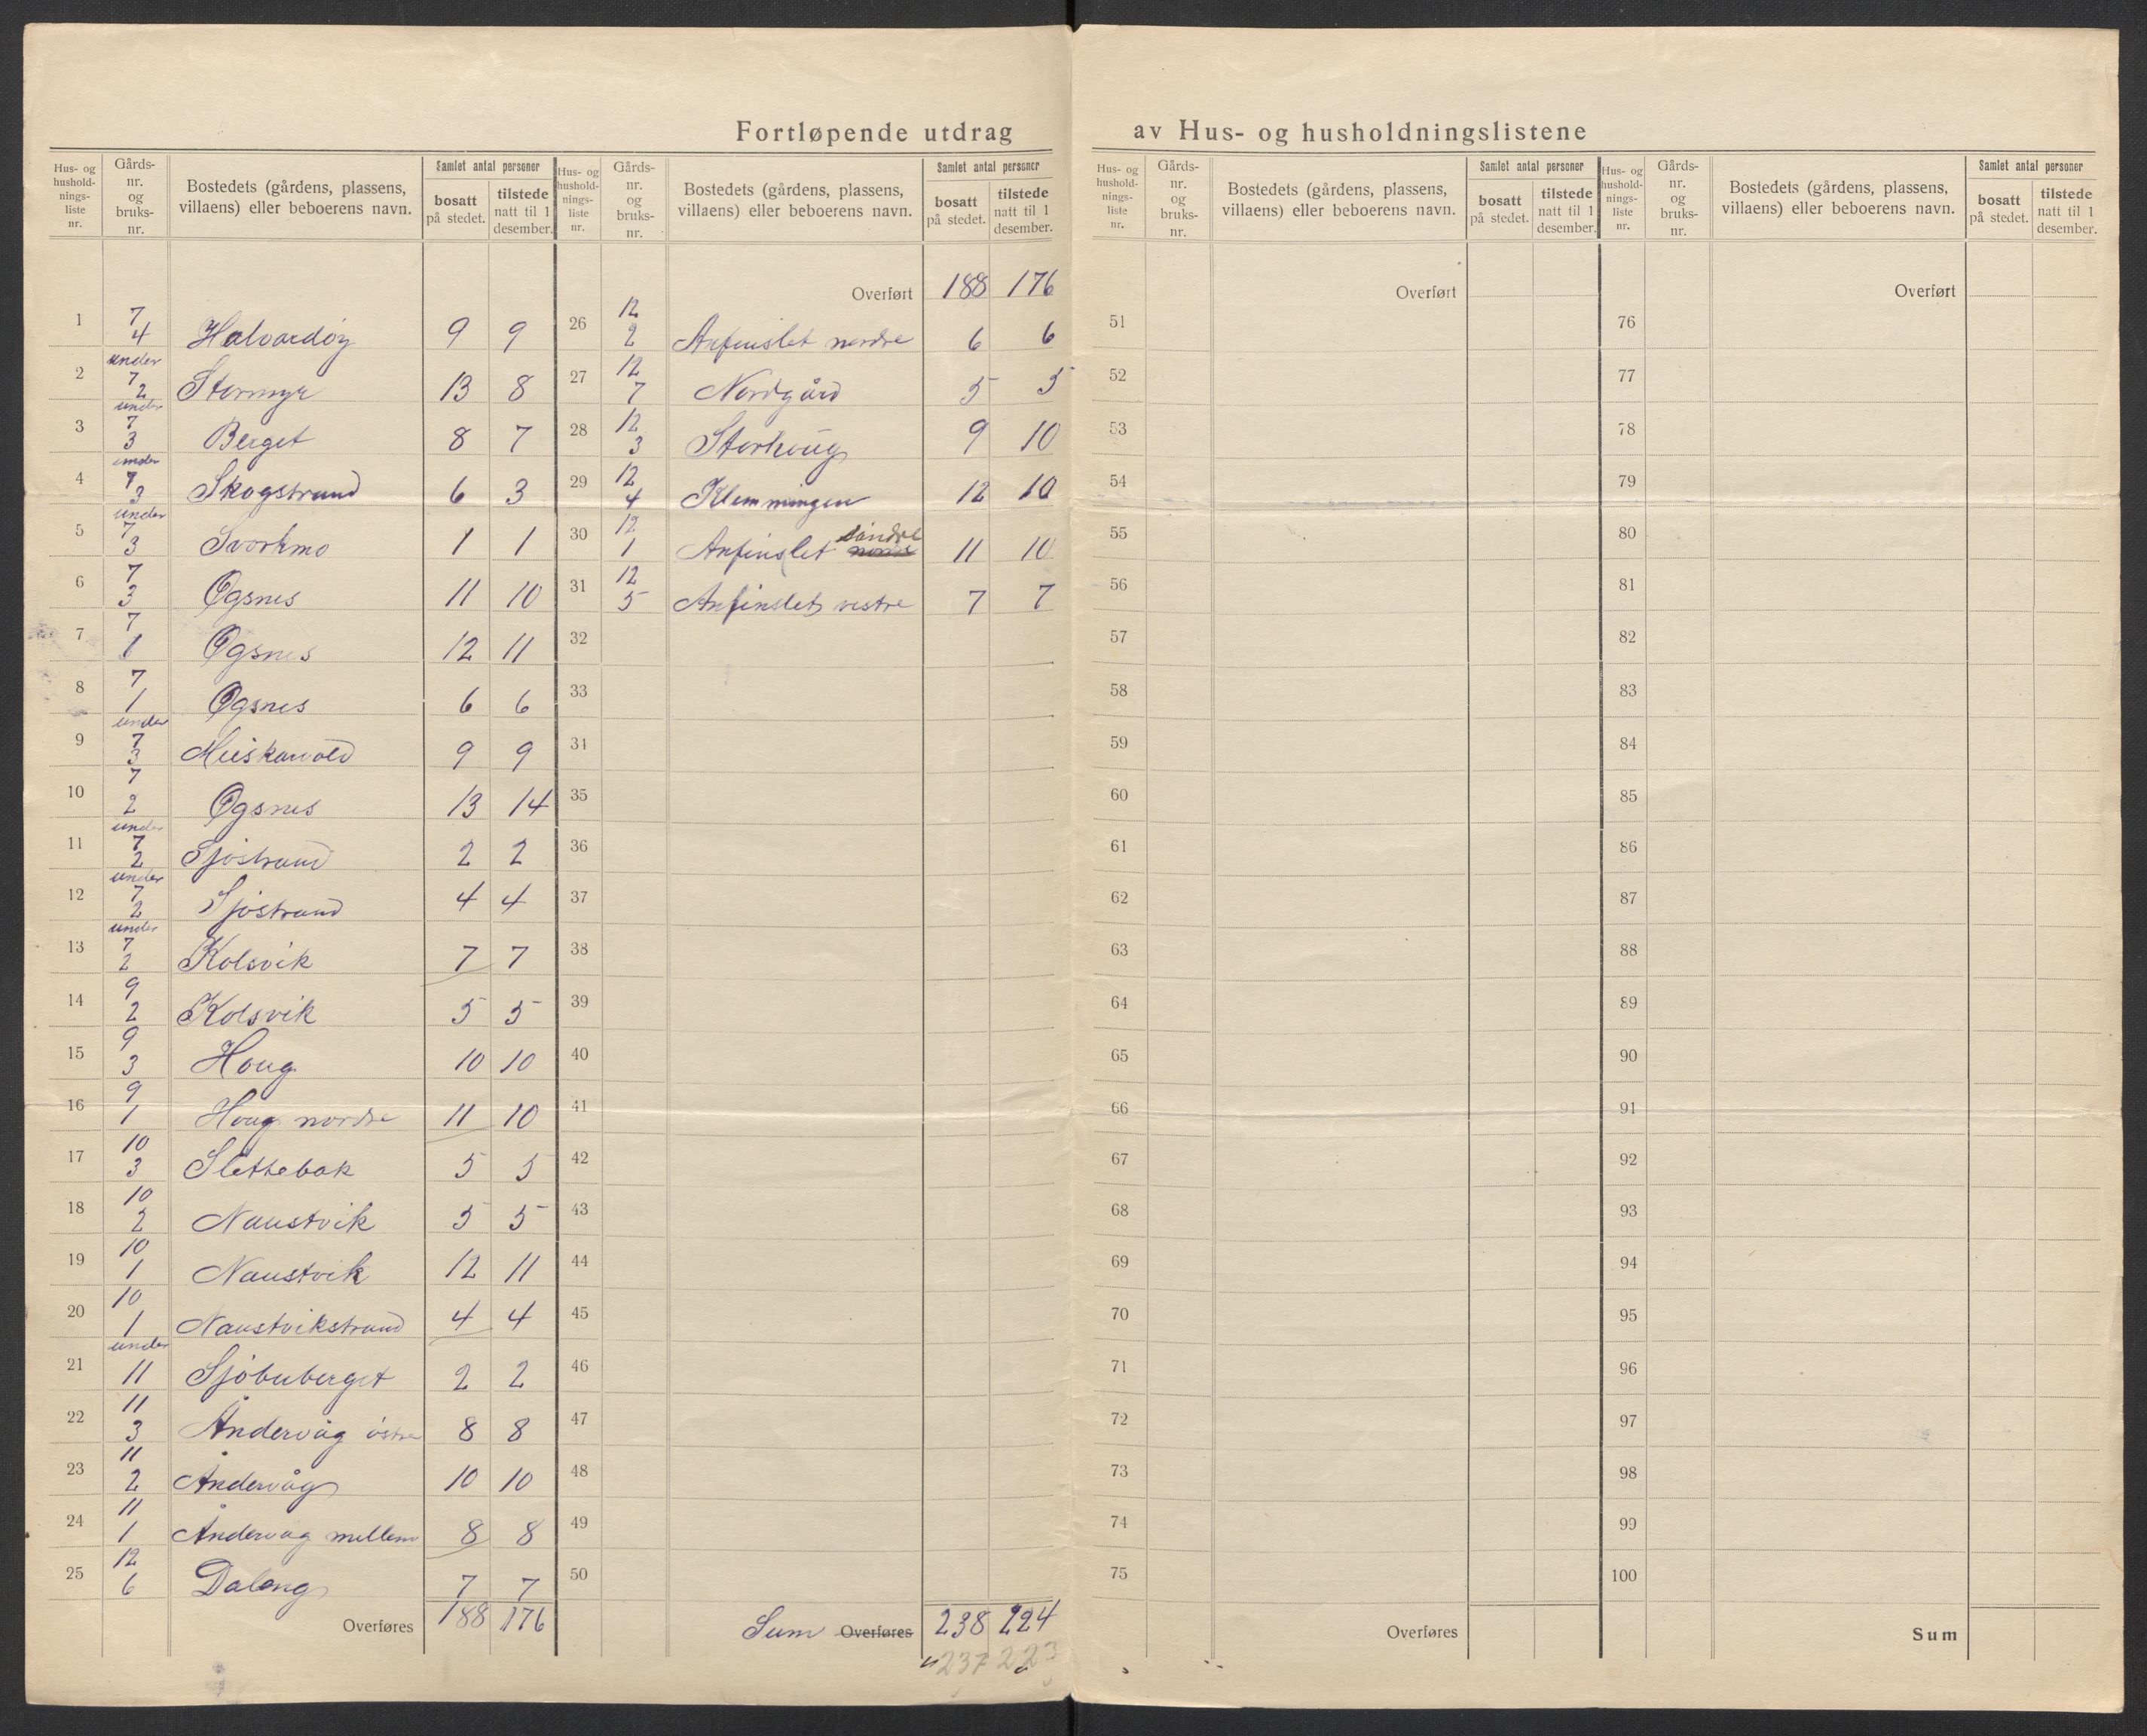 Fortløpende utdrag av Hus- og husholdningslistene
Hus- og husholdningsliste nr. | Gårds-nr. og bruks-nr. | Bostedets (gårdens, plassens, villaens) eller beboerens navn. | Samlet antal personer | bosatt på stedet. | tilstede natt til 1 desember.
1 | 7 4 | Halvardöy | 9 | 9
2 | under 7 2 | Stormyr | 13 | 8
3 | under 7 3 | Berget | 8 | 7
4 | under 7 3 | Skogstrand | 6 | 3
5 | under 7 3 | Svorkmo | 1 | 1
6 | 7 3 | Ogsnes | 11 | 10
7 | 7 1 | Ogsnes | 12 | 11
8 | 7 1 | Ogsnes | 6 | 6
9 | under 7 3 | 9 | 9
10 | 7 2 | Ogsnes | 13 | 14
11 | under 7 2 | Sjöstrand | 2 | 2
12 | under 7 2 | Sjöstrand | 4 | 4
13 | under 7 2 | Kolsvik | 7 | 7
14 | 9 2 | Kolsvik | 5 | 5
15 | 9 3 | Houg | 10 | 10
16 | 9 1 | Houg nordre | 11 | 10
17 | 10 3 | Slettebak | 5 | 5
18 | 10 2 | Naustvik | 5 | 5
19 | 10 1 | Naustvik | 12 | 11
20 | 10 1 | Naustvikstrand | 4 | 4
21 | under 11 | Sjöbuberget | 2 | 2
22 | 11 3 | Åndervåg östre | 8 | 8
23 | 11 2 | Åndervåg | 10 | 10
24 | 11 1 | Åndervåg mellem | 8 | 8
25 | 12 6 | Daleng | 7 | 7
Overføres | 188 | 176
Hus- og husholdningsliste nr. | Gårds-nr. og bruks-nr. | Bostedets (gårdens, plassens, villaens) eller beboerens navn. | Samlet antal personer | bosatt på stedet. | tilstede natt til 1 desember.
Overført | 188 | 176
26 | 12 2 | Anfinslet nordre | 6 | 6
27 | 12 7 | Nordgård | 5 | 5
28 | 12 3 | Storhoug | 9 | 10
29 | 12 4 | Klemmingen | 12 | 10
30 | 12 1 | Anfinslet söndre | 11 | 10
31 | 12 5 | Anfinslet vestre | 7 | 7
32
33
34
35
36
37
38
39
40
41
42
43
44
45
46
47
48
49
50
Sum Overføres | 238 | 224
237 223
Hus- og husholdningsliste nr. | Gårds-nr. og bruks-nr. | Bostedets (gårdens, plassens, villaens) eller beboerens navn. | Samlet antal personer | bosatt på stedet. | tilstede natt til 1 desember.
Overført
51
52
53
54
55
56
57
58
59
60
61
62
63
64
65
66
67
68
69
70
71
72
73
74
75
Overføres
Hus- og husholdningsliste nr. | Gårds-nr. og bruks-nr. | Bostedets (gårdens, plassens, villaens) eller beboerens navn. | Samlet antal personer | bosatt på stedet. | tilstede natt til 1 desember.
Overført
76
77
78
79
80
81
82
83
84
85
86
87
88
89
90
91
92
93
94
95
96
97
98
99
100
Sum